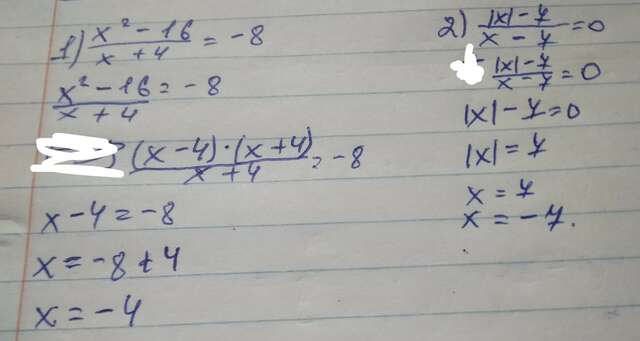 1) (x² - 16)/(x + 4) = -8
(x² - 16)/(x + 4) = -8
((x - 4) · (x + 4))/(x + 4) = -8
x - 4 = -8
x = -8 + 4
x = -4
2) (|x| - 7)/(x - 7) = 0
(|x| - 7)/(x - 7) = 0
|x| - 7 = 0
|x| = 7
x = 7
x = -7.